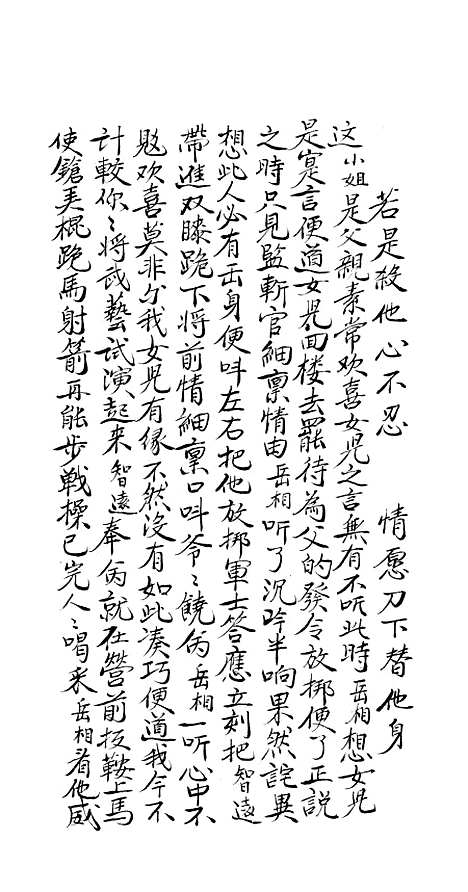 若是殺他心不忍　情愿刀下替他身
这小姐是父親素常欢喜女児之言無有不听此時岳相想女児
是寔言便道女児囬楼去罷待為父的發令放挷便了正説
之時只見監斬官細禀情由岳相听了沉吟半响果然詫異
想此人必有出身便呌左右把他放挷軍士答應立刻把智遠
帶進双膝跪下将前情細禀口呌爷〻饒命岳相一听心中不
勉欢喜莫非尒我女児有缘不然没有如此凑巧便道我今不
计較你〻将武藝试演起来智遠奉命就在營前扳鞍上馬
使鎗弄棍跑馬射箭再能步戦操已完人〻喝采岳相看他威